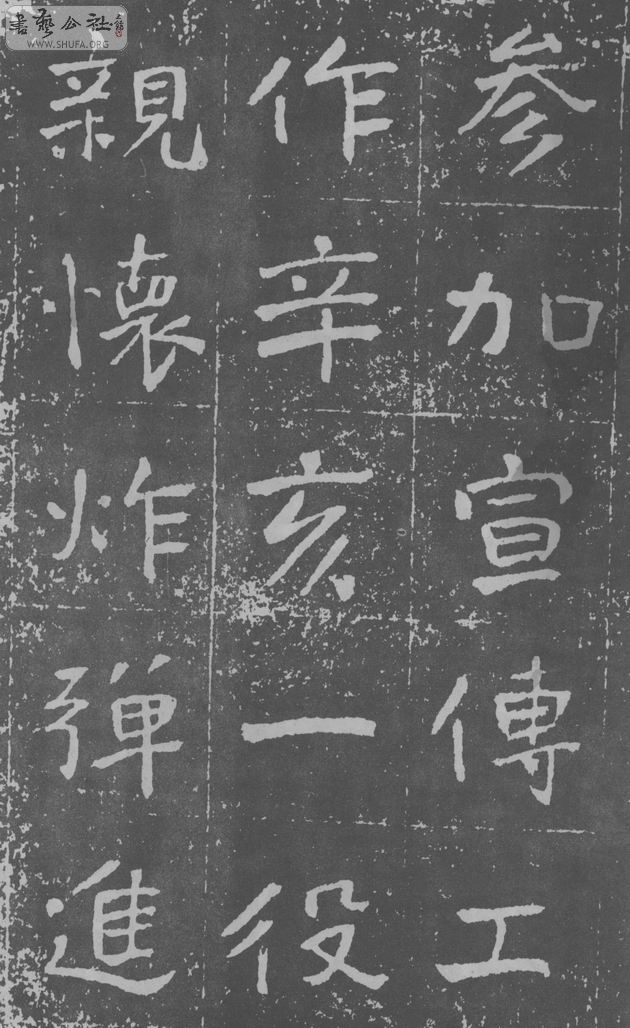 書藝公社
WWW.SHUFA.ORG
参加宣傳工
作辛亥一役
親懷炸弹進